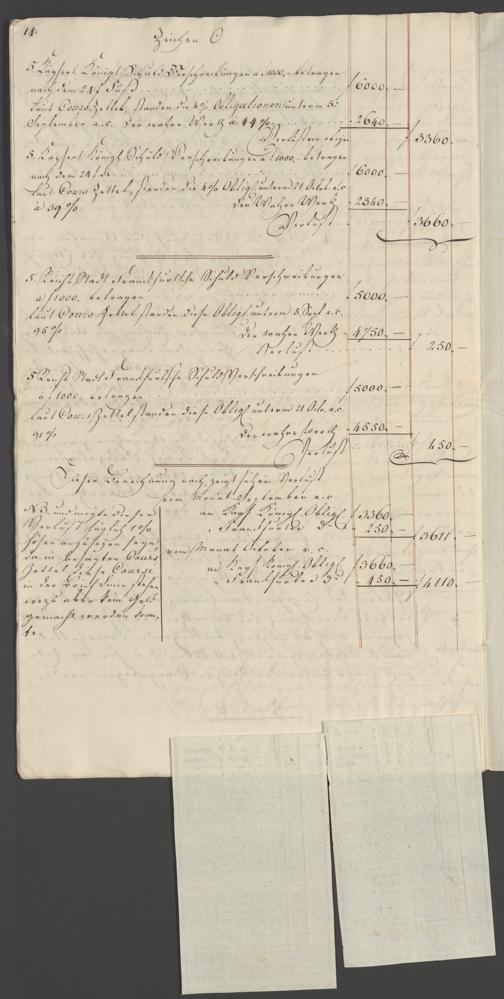 14.
Zeichen C
5. Kayserl. Königl. Schuld Verschreibungen a f 1000,- betragen
nach dem 24 f. Fuß f 6000. —
Laut Cours Zettel, standen die 4% Obligationen unterm 5.
September a.c. der wahre Werth a 44 % - 2640. —
Verlust f 3360. —
5. Kayserl. Königl. Schuld Verschreibungen a f 1000.- betragen
nach dem 24 f. f 6000. —
Laut Cours Zettel, standen die 4% Oblig. unterm 21. Octob. a.c.
a 39 %. Der Wahre Werth - 2340. —
Verlust f 3660. —
5. Reichs Stadt Frankfurtische Schuld Verschreibungen
a f 1000. betragen f 5000. —
Laut Cours Zettel, standen diese Oblig. unterm 5. Sept. a.c.
95 % Der wahre Werth - 4750. —
Verlust f 250. —
5 Reichs Stadt Frankfurtsche Schuld Verschreibungen
a f 1000. betragen f 5000. —
Laut Cours Zettel standen diese Oblig. unterm 21 Octo. a.c.
91 % Der wahre Werth - 4550. —
Verlust f 450. —
Dieser Berechnung nach zeigt sich Verlust
vom Monat September a.c.
an Kays. Königl. Oblig. f 3360. —
" Frankfurter do 250. — f 3611. —
vom Monat October a.c.
an Kays. Königl. Oblig. f 3660. —
" Frankfurter do 450. — f 4110. —
NB. und mögte dieser
Verlust 10%
höher anzusehen seyn,
da in Cours
Zettel diese Course
in der stehen
wozu aber kein Geld
gemacht werden konn-
te.